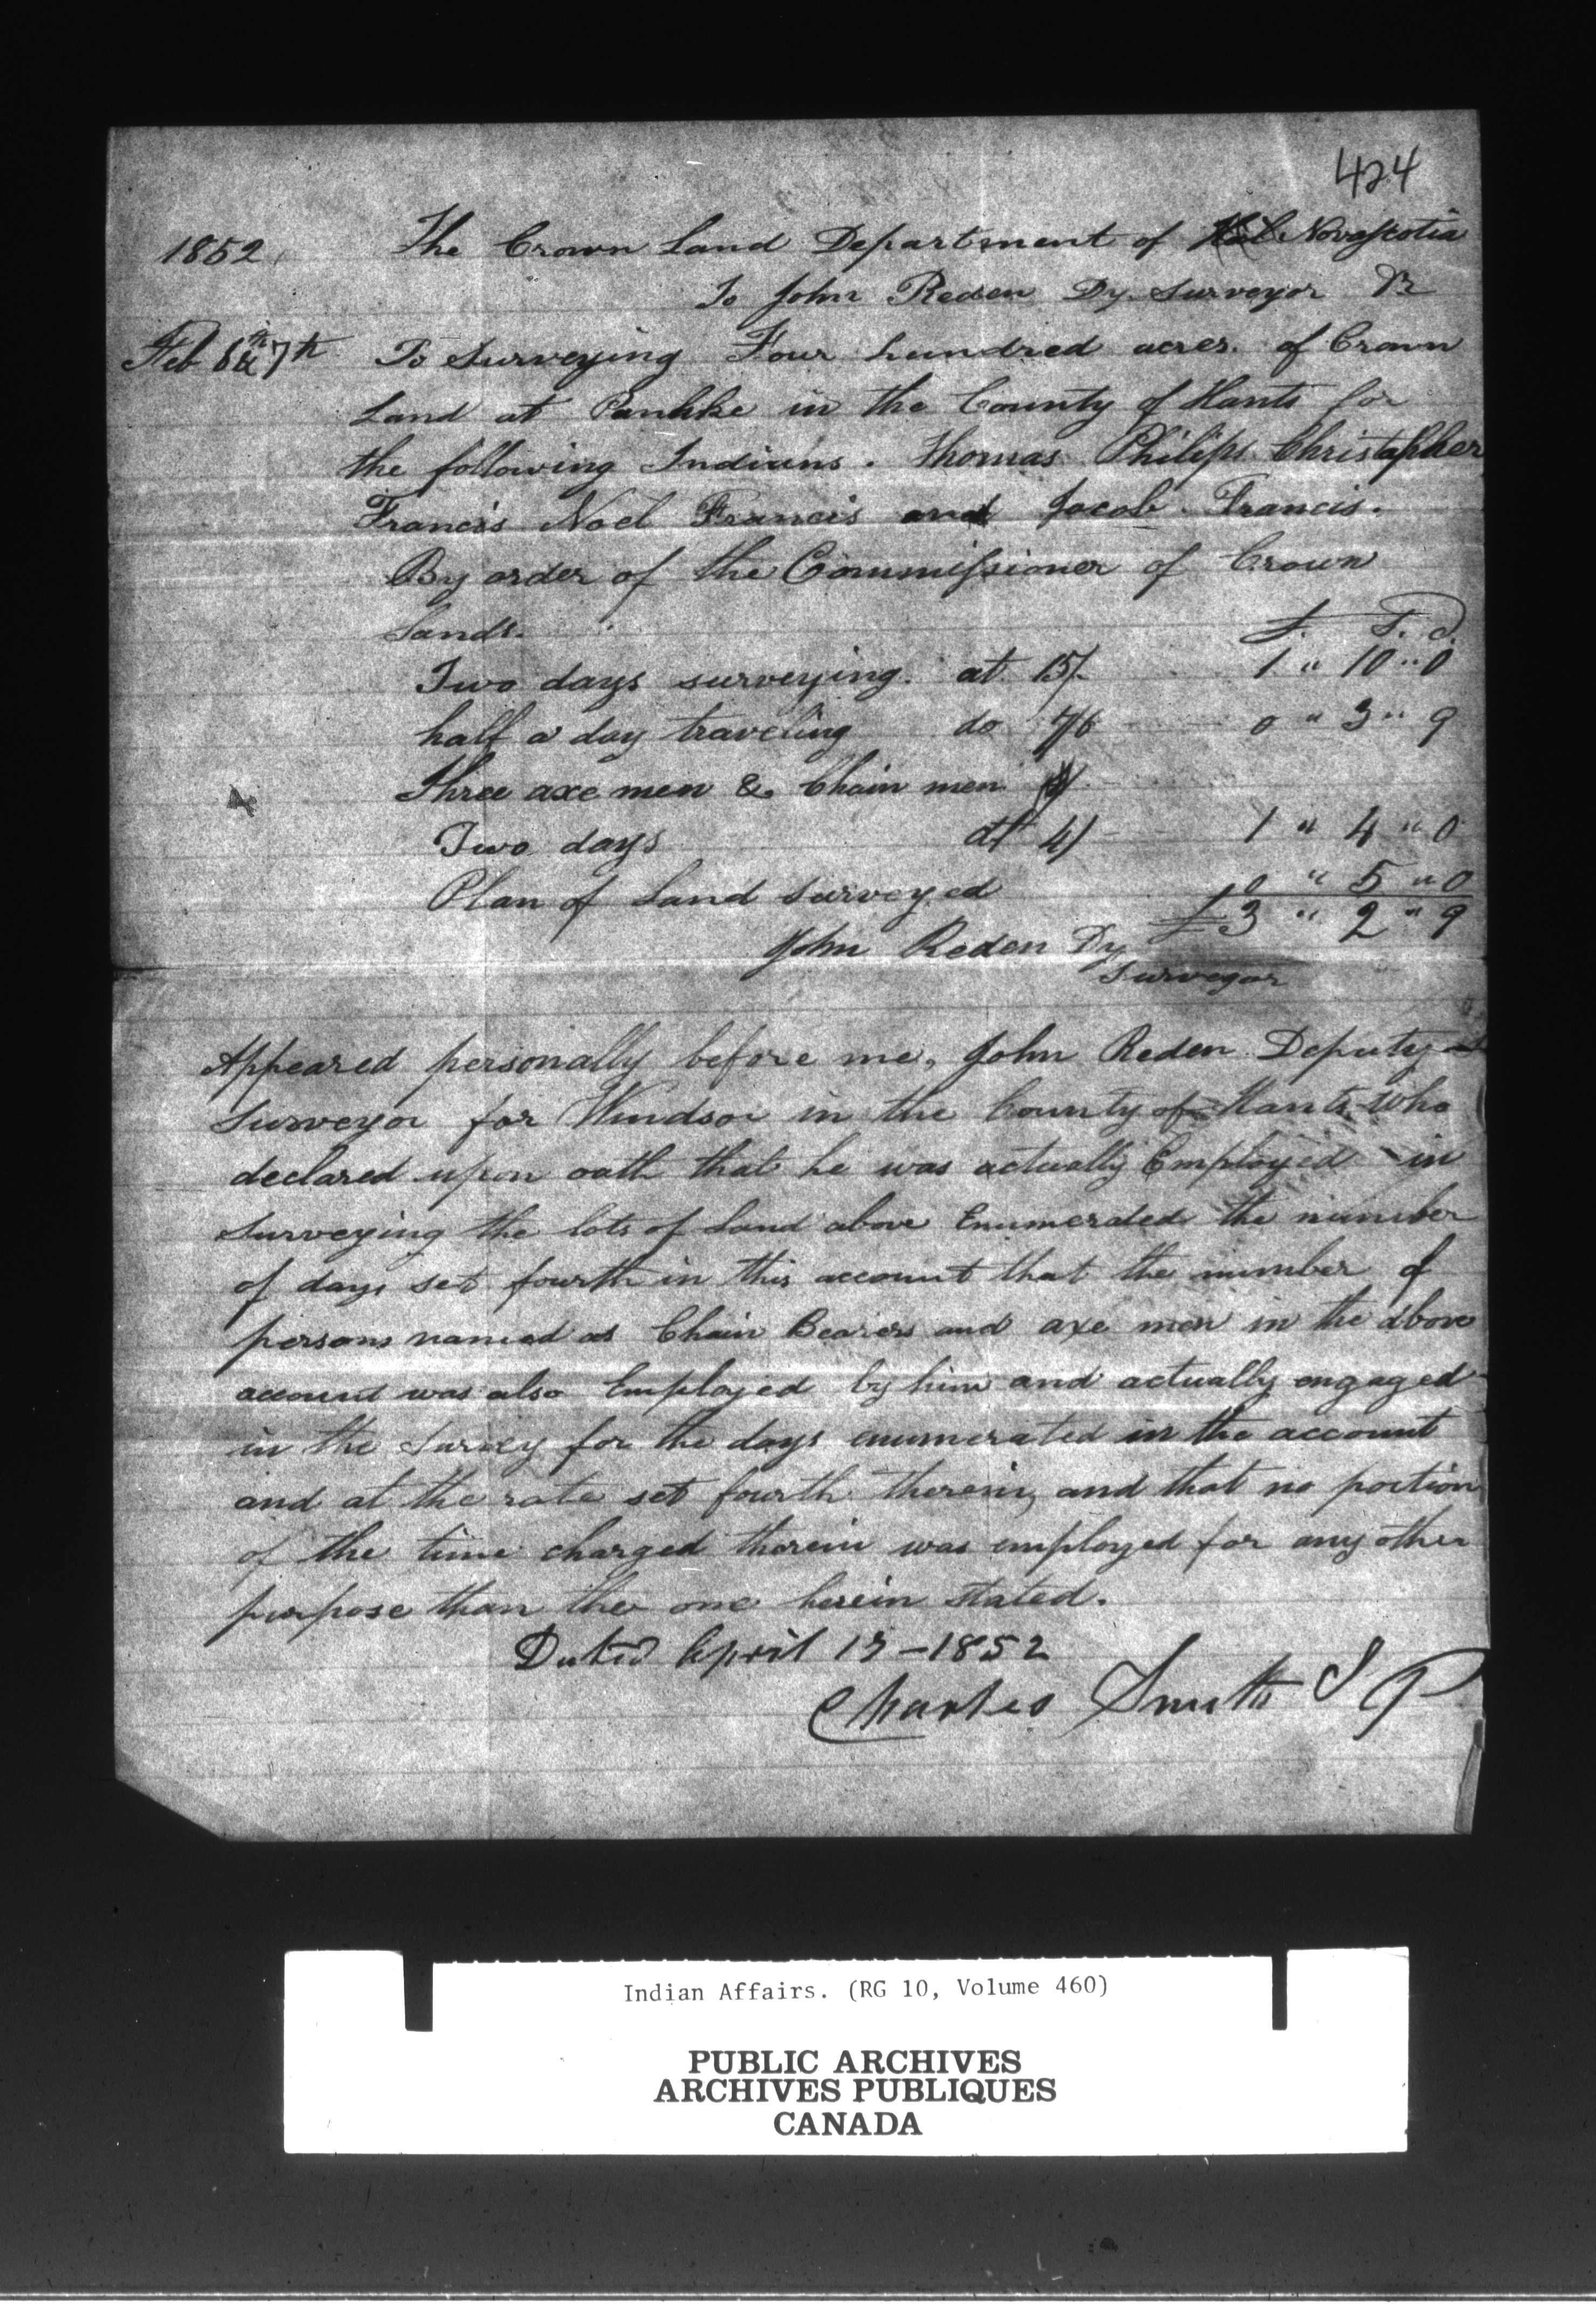 424
1852 The Crown Land Department of Novascotia
To John Reden Dy. Surveyor Dr
Feb 6th & 7th To Surveying Four hundred acres. of Crown
Land at in the County of Hants for
the following Indians. Thomas Philips Christapher
Francis Noel Francis and Jacob Francis.
By order of the Commissioner of Crown
Lands. £. S. d.
Two days surveying. at 15/- 1 " 10 " 0
half a day traveling do 7/6 0 " 3 " 9
Three axe men & Chain men
Two days at 4/- 1 " 4 " 0
Plan of Land Surveyed 0 " 5 " 0
£3 " 2 " 9
John Reden Dy
Surveyor
Appeared personally before me, John Reden Deputy
Surveyor for Windsor in the County of Hants who
declared upon oath that he was actually Employed in
Surveying the lots of Land above Enumerated the number
of days set fourth in this account that the number of
persons named as Chain Bearers and axe men in the above
account was also Employed by him and actually engaged
in the Survey for the days enumerated in the account
and at the rate set fourth therein, and that no portion
of the time charged therein was employed for any other
purpose than the one herein stated.
Dated April 13 - 1852
Charles Smith J P
Indian Affairs. (RG 10, Volume 460)
PUBLIC ARCHIVES
ARCHIVES PUBLIQUES
CANADA